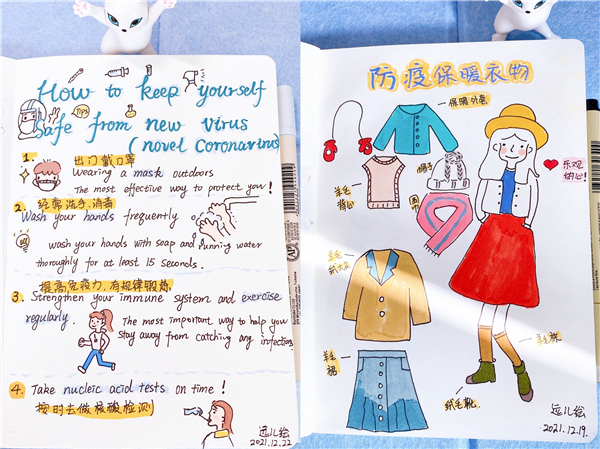 How to keep yourself
Tips
Safe from new virus
(novel Coronavirus)
1. 出门戴口罩
Wearing a mask outdoors
The most effective way to protect you!
2. 经常洗手，消毒
Wash your hands frequently
wash your hands with soap and running water
thoroughly for at least 15 Seconds.
提高免疫力，有规律锻炼
3. Strengthen your immune system and exercise
regularly.
The most important way to help you
Stay away from catching any infections
4. Take nucleic acid tests on time!
按时去做核酸检测
远儿绘
2021.12.22
防疫保暖衣物
保暖外套
帽子
乐观
的心!
羊毛
背心
围巾
羊毛
羊毛
裙
羊毛袜
绒毛靴
远儿绘
2021.12.19.